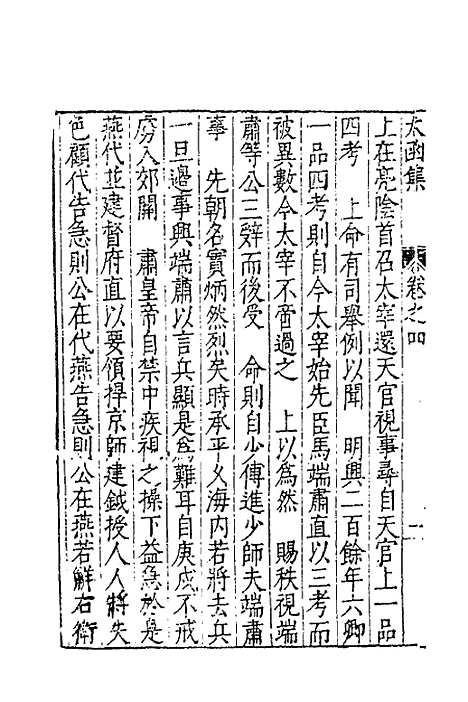 太函集　卷之四　二
上在亮陰首召太宰還天官視事尋自天官上一品
四考　上命有司舉例以聞　明興二百餘年六卿
一品四考則自今太宰始先臣馬端肅直以三考而
被異數今太宰不啻過之　上以爲然　賜秩視端
肅等公三辤而後受　命則自少傅進少師夫端肅
事　先朝名實炳然烈矣時承平乂海内若將去兵
一旦邊事興端肅以言兵顯是爲難耳自庚戍不戒
虜入郊關　肅皇帝自禁中疾視之操下益急於是
燕代並建督府直以要領捍京師建鉞授人人將失
色顧代告急則公在代燕告急則公在燕若觧右衛